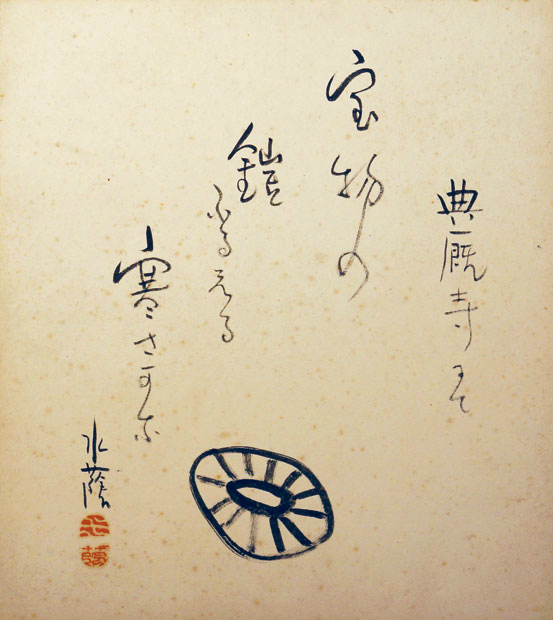 典厩寺にて
宝物の
鎧ふるえる
寒さかな
水蔭